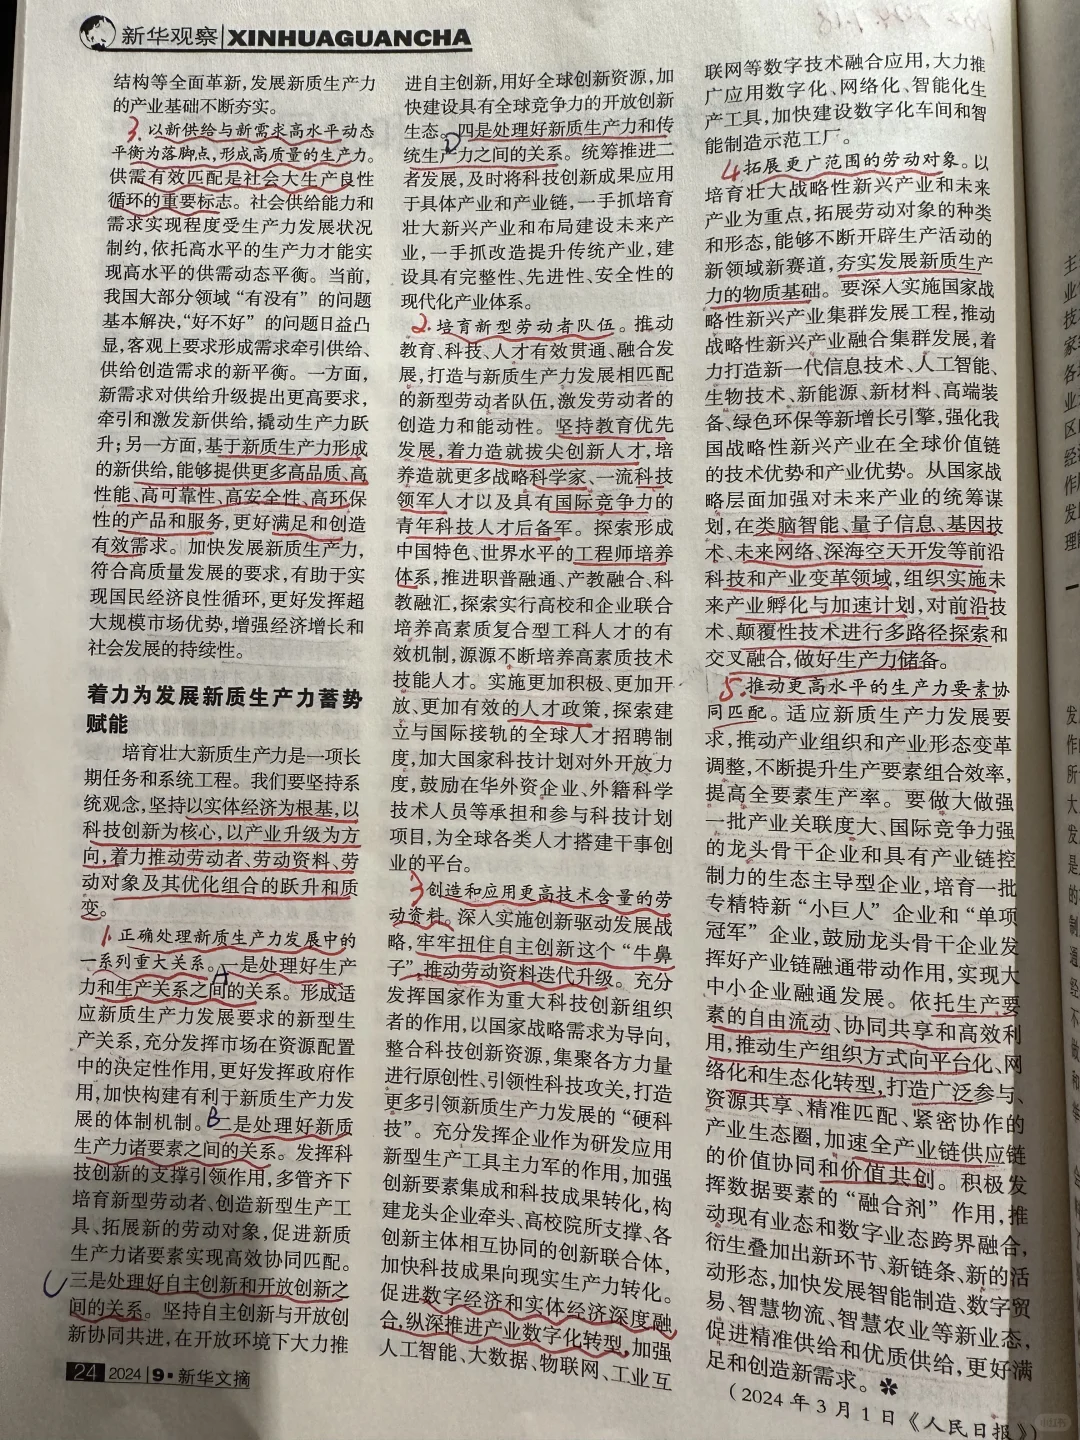 新华观察 XINHUAGUANCHA
结构等全面革新，发展新质生产力
的产业基础不断夯实。
3. 以新供给与新需求高水平动态
平衡为落脚点，形成高质量的生产力。
供需有效匹配是社会大生产良性
循环的重要标志。社会供给能力和
需求实现程度受生产力发展状况
制约，依托高水平的生产力才能实
现高水平的供需动态平衡。当前，
我国大部分领域“有没有”的问题
基本解决，“好不好”的问题日益凸
显，客观上要求形成需求牵引供给、
供给创造需求的新平衡。一方面，
新需求对供给升级提出更高要求，
牵引和激发新供给，撬动生产力跃
升；另一方面，基于新质生产力形成
的新供给，能够提供更多高品质、高
性能、高可靠性、高安全性、高环保
性的产品和服务，更好满足和创造
有效需求。加快发展新质生产力，
符合高质量发展的要求，有助于实
现国民经济良性循环，更好发挥超
大规模市场优势，增强经济增长和
社会发展的持续性。
着力为发展新质生产力蓄势
赋能
培育壮大新质生产力是一项长
期任务和系统工程。我们要坚持系
统观念，坚持以实体经济为根基，以
科技创新为核心，以产业升级为方
向，着力推动劳动者、劳动资料、劳
动对象及其优化组合的跃升和质
变。
1. 正确处理新质生产力发展中的
一系列重大关系。A一是处理好生产
力和生产关系之间的关系。形成适
应新质生产力发展要求的新型生
产关系，充分发挥市场在资源配置
中的决定性作用，更好发挥政府作
用，加快构建有利于新质生产力发
展的体制机制。B二是处理好新质
生产力诸要素之间的关系。发挥科
技创新的支撑引领作用，多管齐下
培育新型劳动者、创造新型生产工
具、拓展新的劳动对象，促进新质
生产力诸要素实现高效协同匹配。
C三是处理好自主创新和开放创新之
间的关系。坚持自主创新与开放创
新协同共进，在开放环境下大力推
24 2024|9·新华文摘
进自主创新，用好全球创新资源，加
快建设具有全球竞争力的开放创新
生态。D四是处理好新质生产力和传
统生产力之间的关系。统筹推进二
者发展，及时将科技创新成果应用
于具体产业和产业链，一手抓培育
壮大新兴产业和布局建设未来产
业，一手抓改造提升传统产业，建
设具有完整性、先进性、安全性的
现代化产业体系。
2. 培育新型劳动者队伍。推动
教育、科技、人才有效贯通、融合发
展，打造与新质生产力发展相匹配
的新型劳动者队伍，激发劳动者的
创造力和能动性。坚持教育优先
发展，着力造就拔尖创新人才，培
养造就更多战略科学家、一流科技
领军人才以及具有国际竞争力的
青年科技人才后备军。探索形成
中国特色、世界水平的工程师培养
体系，推进职普融通、产教融合、科
教融汇，探索实行高校和企业联合
培养高素质复合型工科人才的有
效机制，源源不断培养高素质技术
技能人才。实施更加积极、更加开
放、更加有效的人才政策，探索建
立与国际接轨的全球人才招聘制
度，加大国家科技计划对外开放力
度，鼓励在华外资企业、外籍科学
技术人员等承担和参与科技计划
项目，为全球各类人才搭建干事创
业的平台。
3 创造和应用更高技术含量的劳
动资料。深入实施创新驱动发展战
略，牢牢扭住自主创新这个“牛鼻
子”，推动劳动资料迭代升级。充分
发挥国家作为重大科技创新组织
者的作用，以国家战略需求为导向，
整合科技创新资源，集聚各方力量
进行原创性、引领性科技攻关，打造
更多引领新质生产力发展的“硬科
技”。充分发挥企业作为研发应用
新型生产工具主力军的作用，加强
创新要素集成和科技成果转化，构
建龙头企业牵头、高校院所支撑、各
创新主体相互协同的创新联合体，
加快科技成果向现实生产力转化。
促进数字经济和实体经济深度融
合，纵深推进产业数字化转型，加强
人工智能、大数据、物联网、工业互
联网等数字技术融合应用，大力推
广应用数字化、网络化、智能化生
产工具，加快建设数字化车间和智
能制造示范工厂。
4 拓展更广范围的劳动对象。以
培育壮大战略性新兴产业和未来
产业为重点，拓展劳动对象的种类
和形态，能够不断开辟生产活动的
新领域新赛道，夯实发展新质生产
力的物质基础。要深入实施国家战
略性新兴产业集群发展工程，推动
战略性新兴产业融合集群发展，着
力打造新一代信息技术、人工智能、
生物技术、新能源、新材料、高端装
备、绿色环保等新增长引擎，强化我
国战略性新兴产业在全球价值链
的技术优势和产业优势。从国家战
略层面加强对未来产业的统筹谋
划，在类脑智能、量子信息、基因技
术、未来网络、深海空天开发等前沿
科技和产业变革领域，组织实施未
来产业孵化与加速计划，对前沿技
术、颠覆性技术进行多路径探索和
交叉融合，做好生产力储备。
5. 推动更高水平的生产力要素协
同匹配。适应新质生产力发展要
求，推动产业组织和产业形态变革
调整，不断提升生产要素组合效率，
提高全要素生产率。要做大做强
一批产业关联度大、国际竞争力强
的龙头骨干企业和具有产业链控
制力的生态主导型企业，培育一批
专精特新“小巨人”企业和“单项
冠军”企业，鼓励龙头骨干企业发
挥好产业链融通带动作用，实现大
中小企业融通发展。依托生产要
素的自由流动、协同共享和高效利
用，推动生产组织方式向平台化、网
络化和生态化转型，打造广泛参与、
资源共享、精准匹配、紧密协作的
产业生态圈，加速全产业链供应链
的价值协同和价值共创。积极发
挥数据要素的“融合剂”作用，推
动现有业态和数字业态跨界融合，
衍生叠加出新环节、新链条、新的活
动形态，加快发展智能制造、数字贸
易、智慧物流、智慧农业等新业态，
促进精准供给和优质供给，更好满
足和创造新需求。
（2024年3月1日《人民日报》）